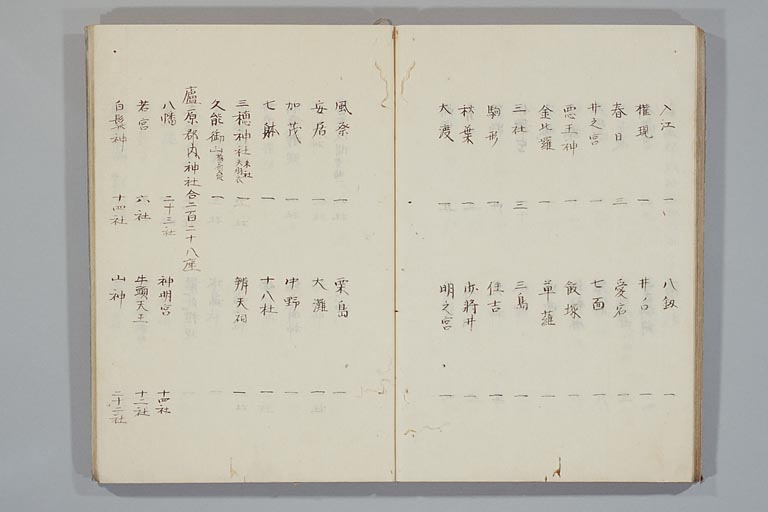 入江 一 八劔 一
権現 一 井ノ口 一
春日 三 愛宕 一
井之宮 一 七面 一
悪王神 一 飯塚 一
金比羅 一 草薙 一
三社 三 三島 一
駒形 一 住吉 一
秋葉 一 一
大渡 一 明之宮 一
風祭 一 粟島 一
安居 一 大灘 一
加茂 一 中野 一
七躰 一 十八社 一
三穂神社 末社 一 辨天祠 一
久能御山 一
廬原郡内神社合二百二十八座
八幡 二十三社 神明宮 十四社
若宮 六社 牛頭天王 十二社
白髭神 十四社 山神 二十二社